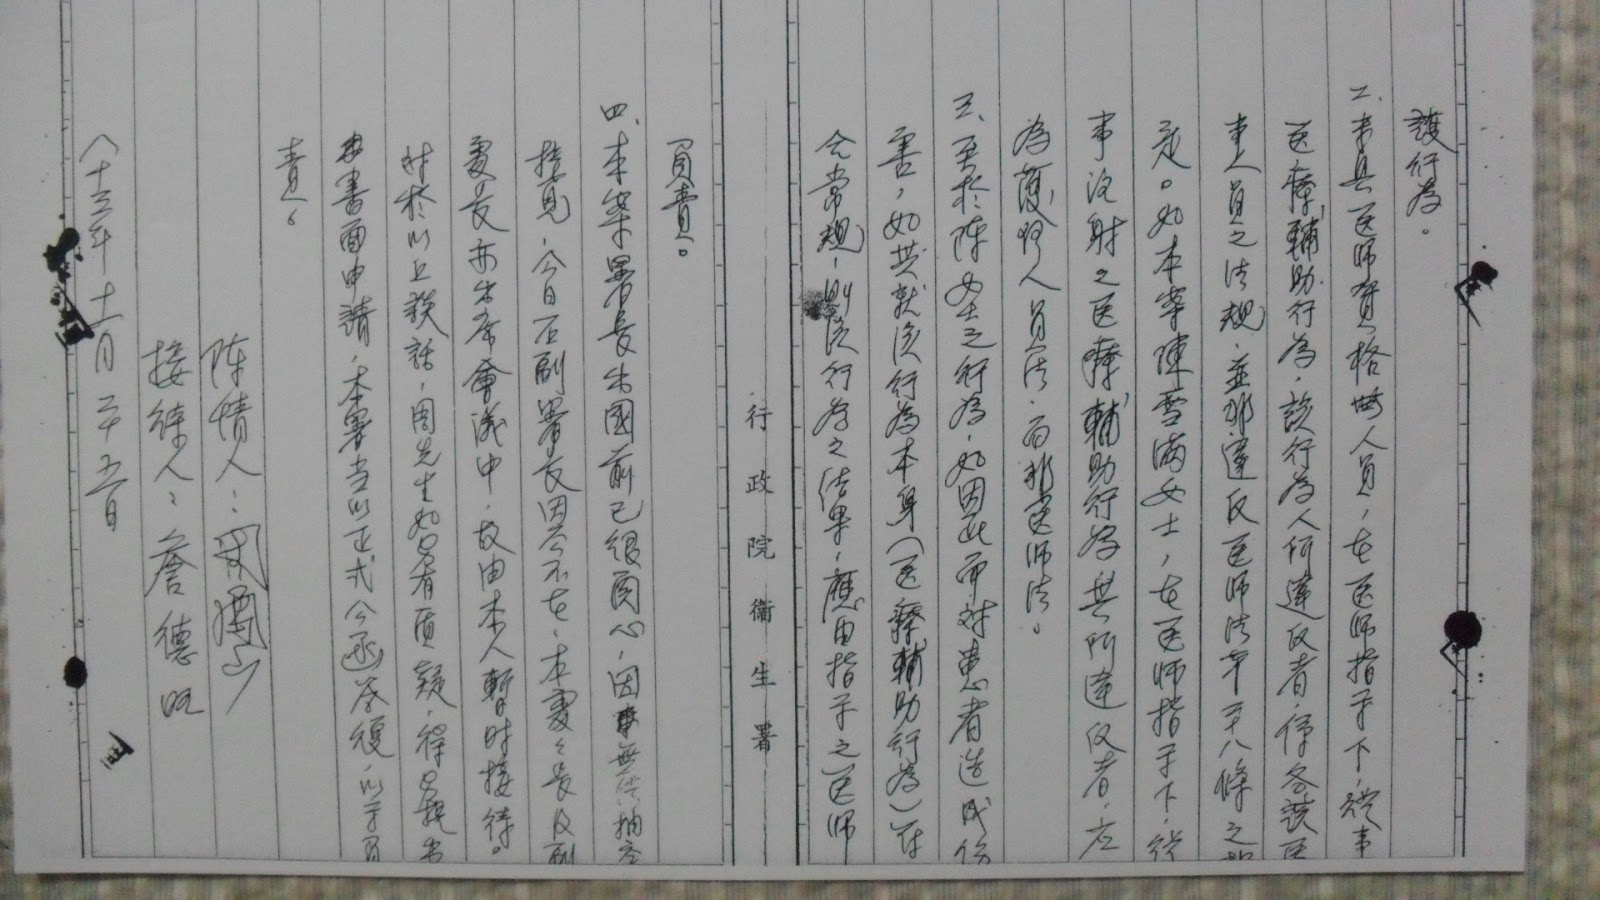 護行為。
二、未具医師資格無人員,在医師指示下,從事
医療輔助行為,該行為人所違反者,係各該医
事人員之法規,並非違反医師法第二十八條之規
定。如本案陳雪滿女士,在医師指示下,從
事注射之医療輔助行為,其所違反者,应
為護理人員法,而非医師法。
三、至於陳女士之行為,如因此而对患者造成伤
害,如其就該行為本身(医療輔助行為)符
合常規,則該行為之結果,應由指示之医師
負責。
行政院衛生署
四、本案署長出國前已很関心,因無法抽空
接見,今日石副署長因公不在,本處處長及副
處長亦出席會議中,故由本人暫時接待。
对於以上談話,周先生如尚有質疑,得另提出
書面申請,本署当以正式公函答復,以示負
責。
陈情人:周
接待人:詹德旺
八十三年十一月二十五日